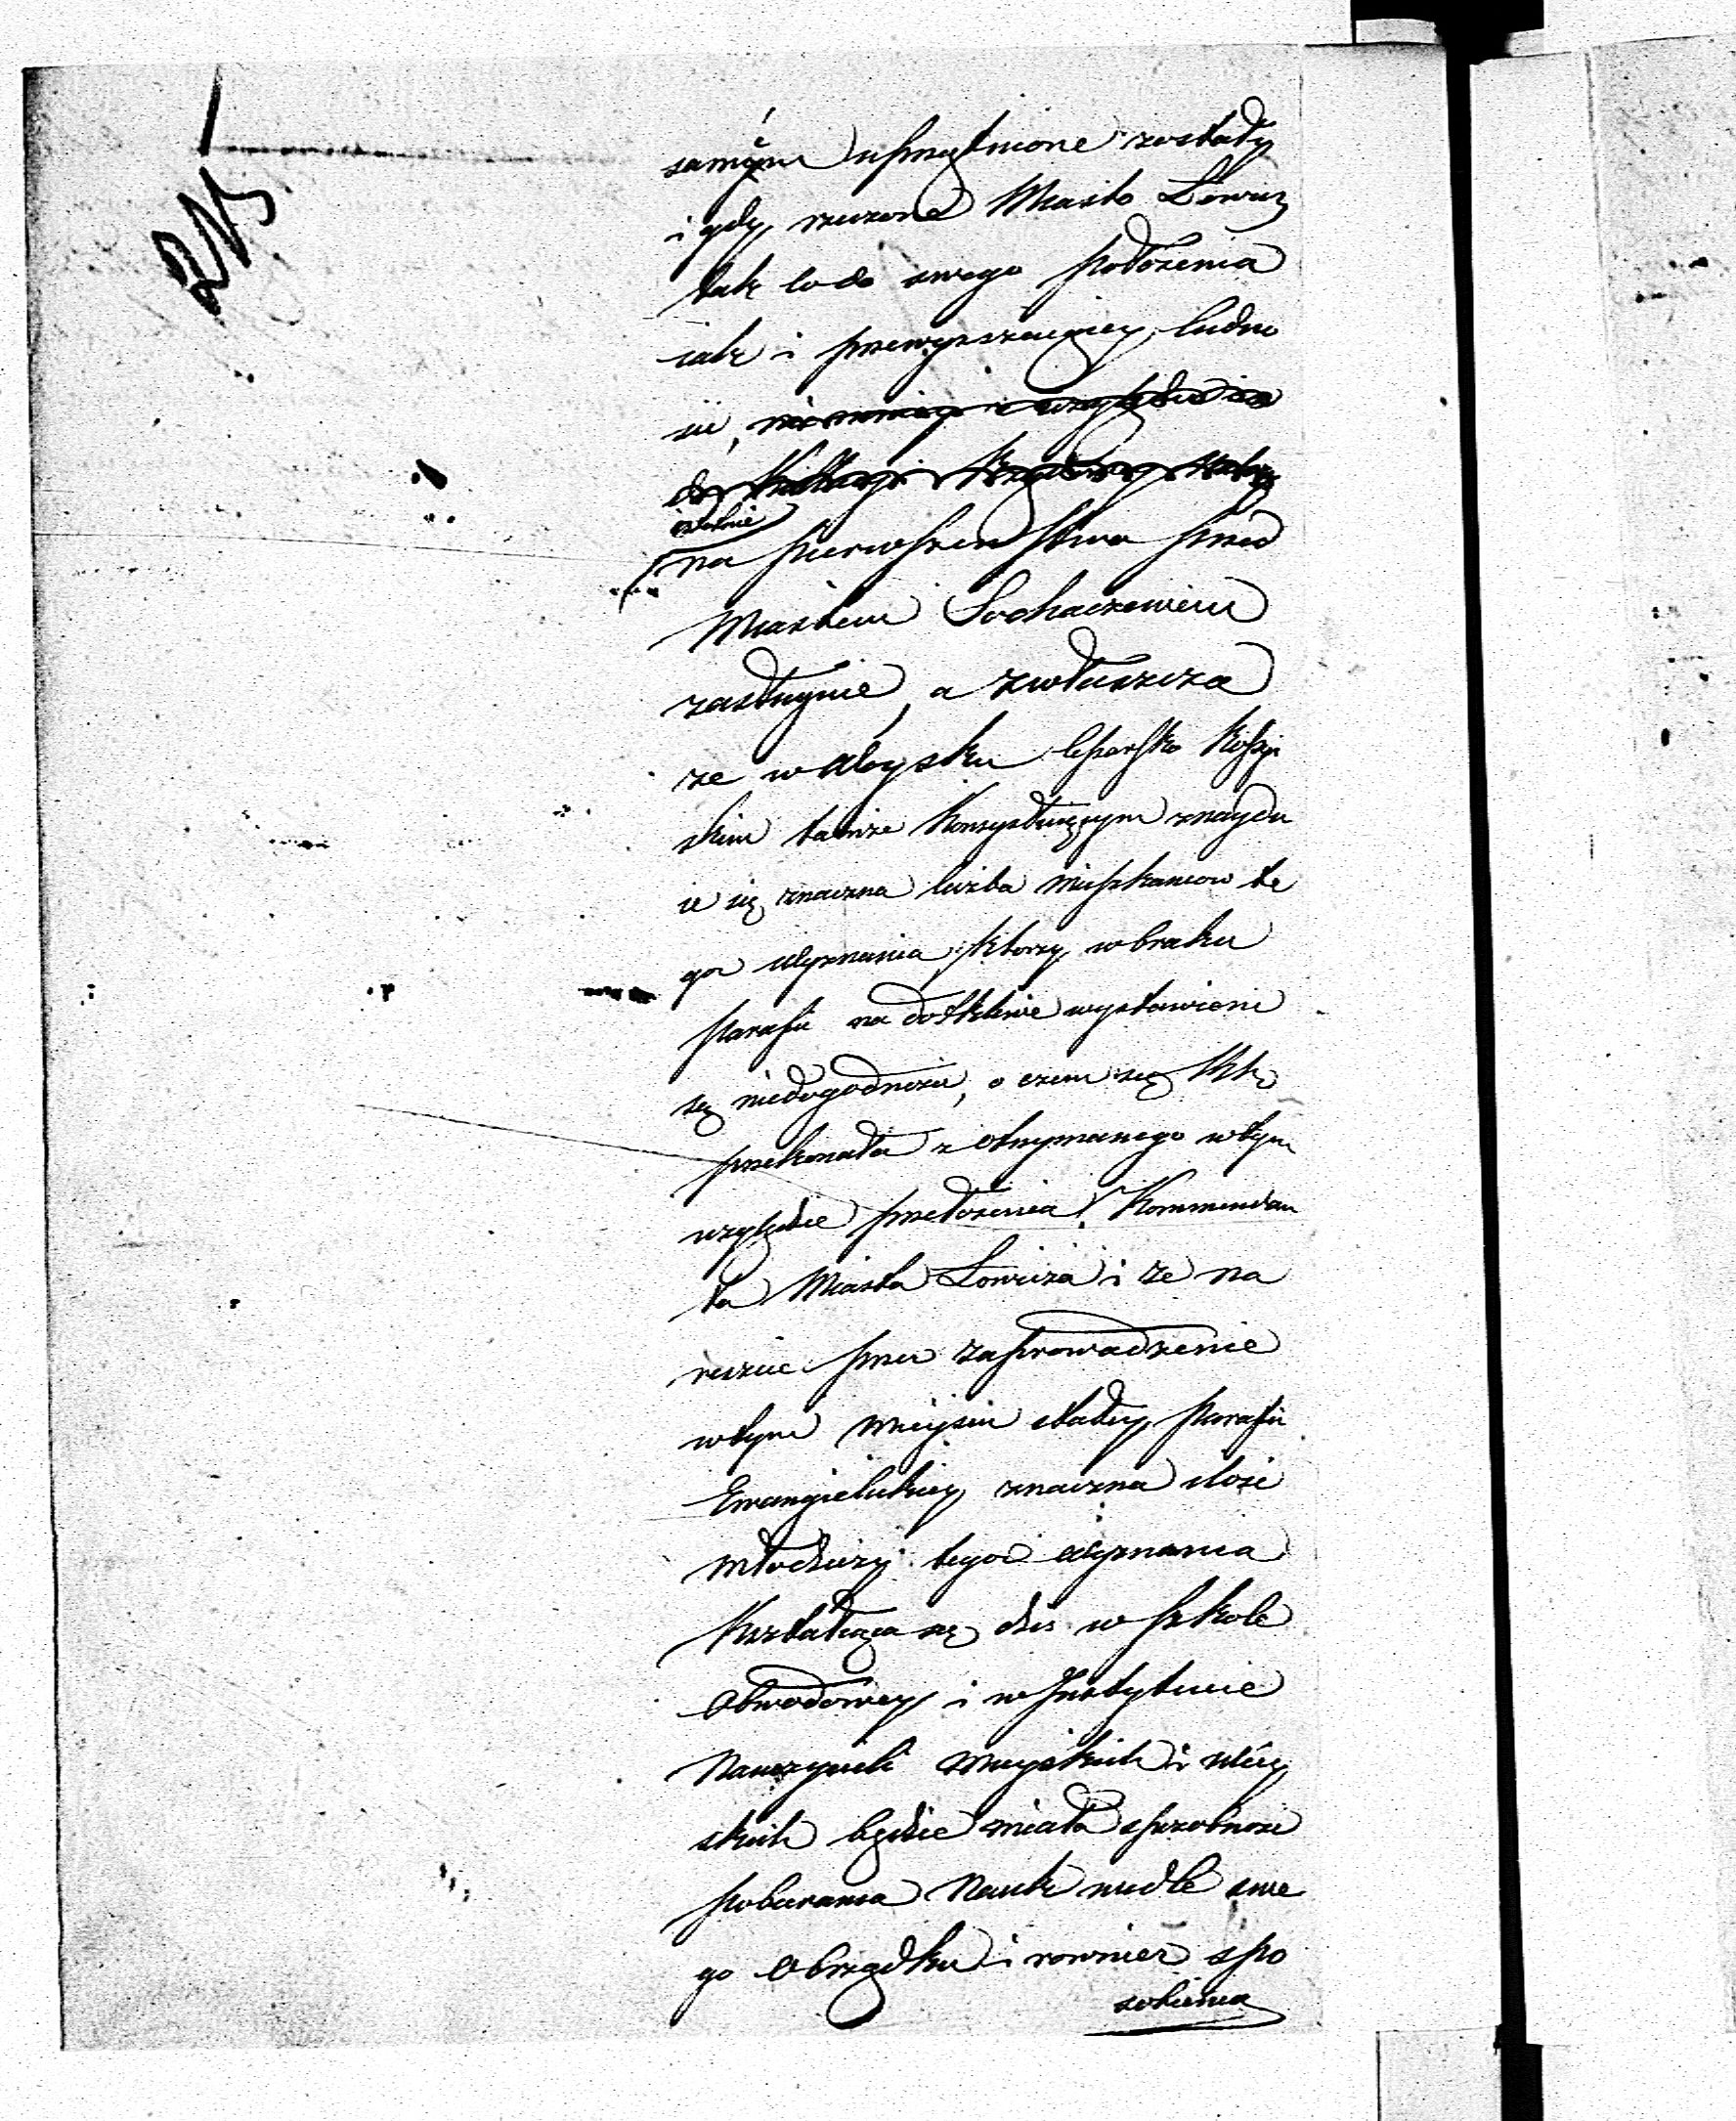 samém uprzątnione zostały
i gdy rzeczone Miasto Łowicz
tak co do swego położenia
iak i przewyższaiącey ludno
sci, nie mniey i względnie
do
istotnie
na pierwszenstwo przed
Miastem Sochaczewem
zasługuie, a zwłaszcza
że w Woysku Cesarsko Rossyi
skim tamże Konsystuiącym znaydu
ie się znaczna liczba mieszkancow te
goż Wyznania, ktorzy w braku
parafii na dotkliwe wystawieni
są niedogodnosci, o czem się
przekonała z otrzymanego w tym
względzie przełożenia Kommendan
ta Miasta Łowicza i że na
reszcie przez zaprowadzenie
w tym mieyscu stałey parafii
Ewangielickiey znaczna ilosć
młodzieży tegoż Wyznania
Kształcąca się dziś w szkole
Obwodowey i w Instytucie
Nauczycieli Mieyskich i Wiey
skich będzie miała sposobnosć
pobierania Nauk wedle swe
go Obrządku i rownież spo
sobienia